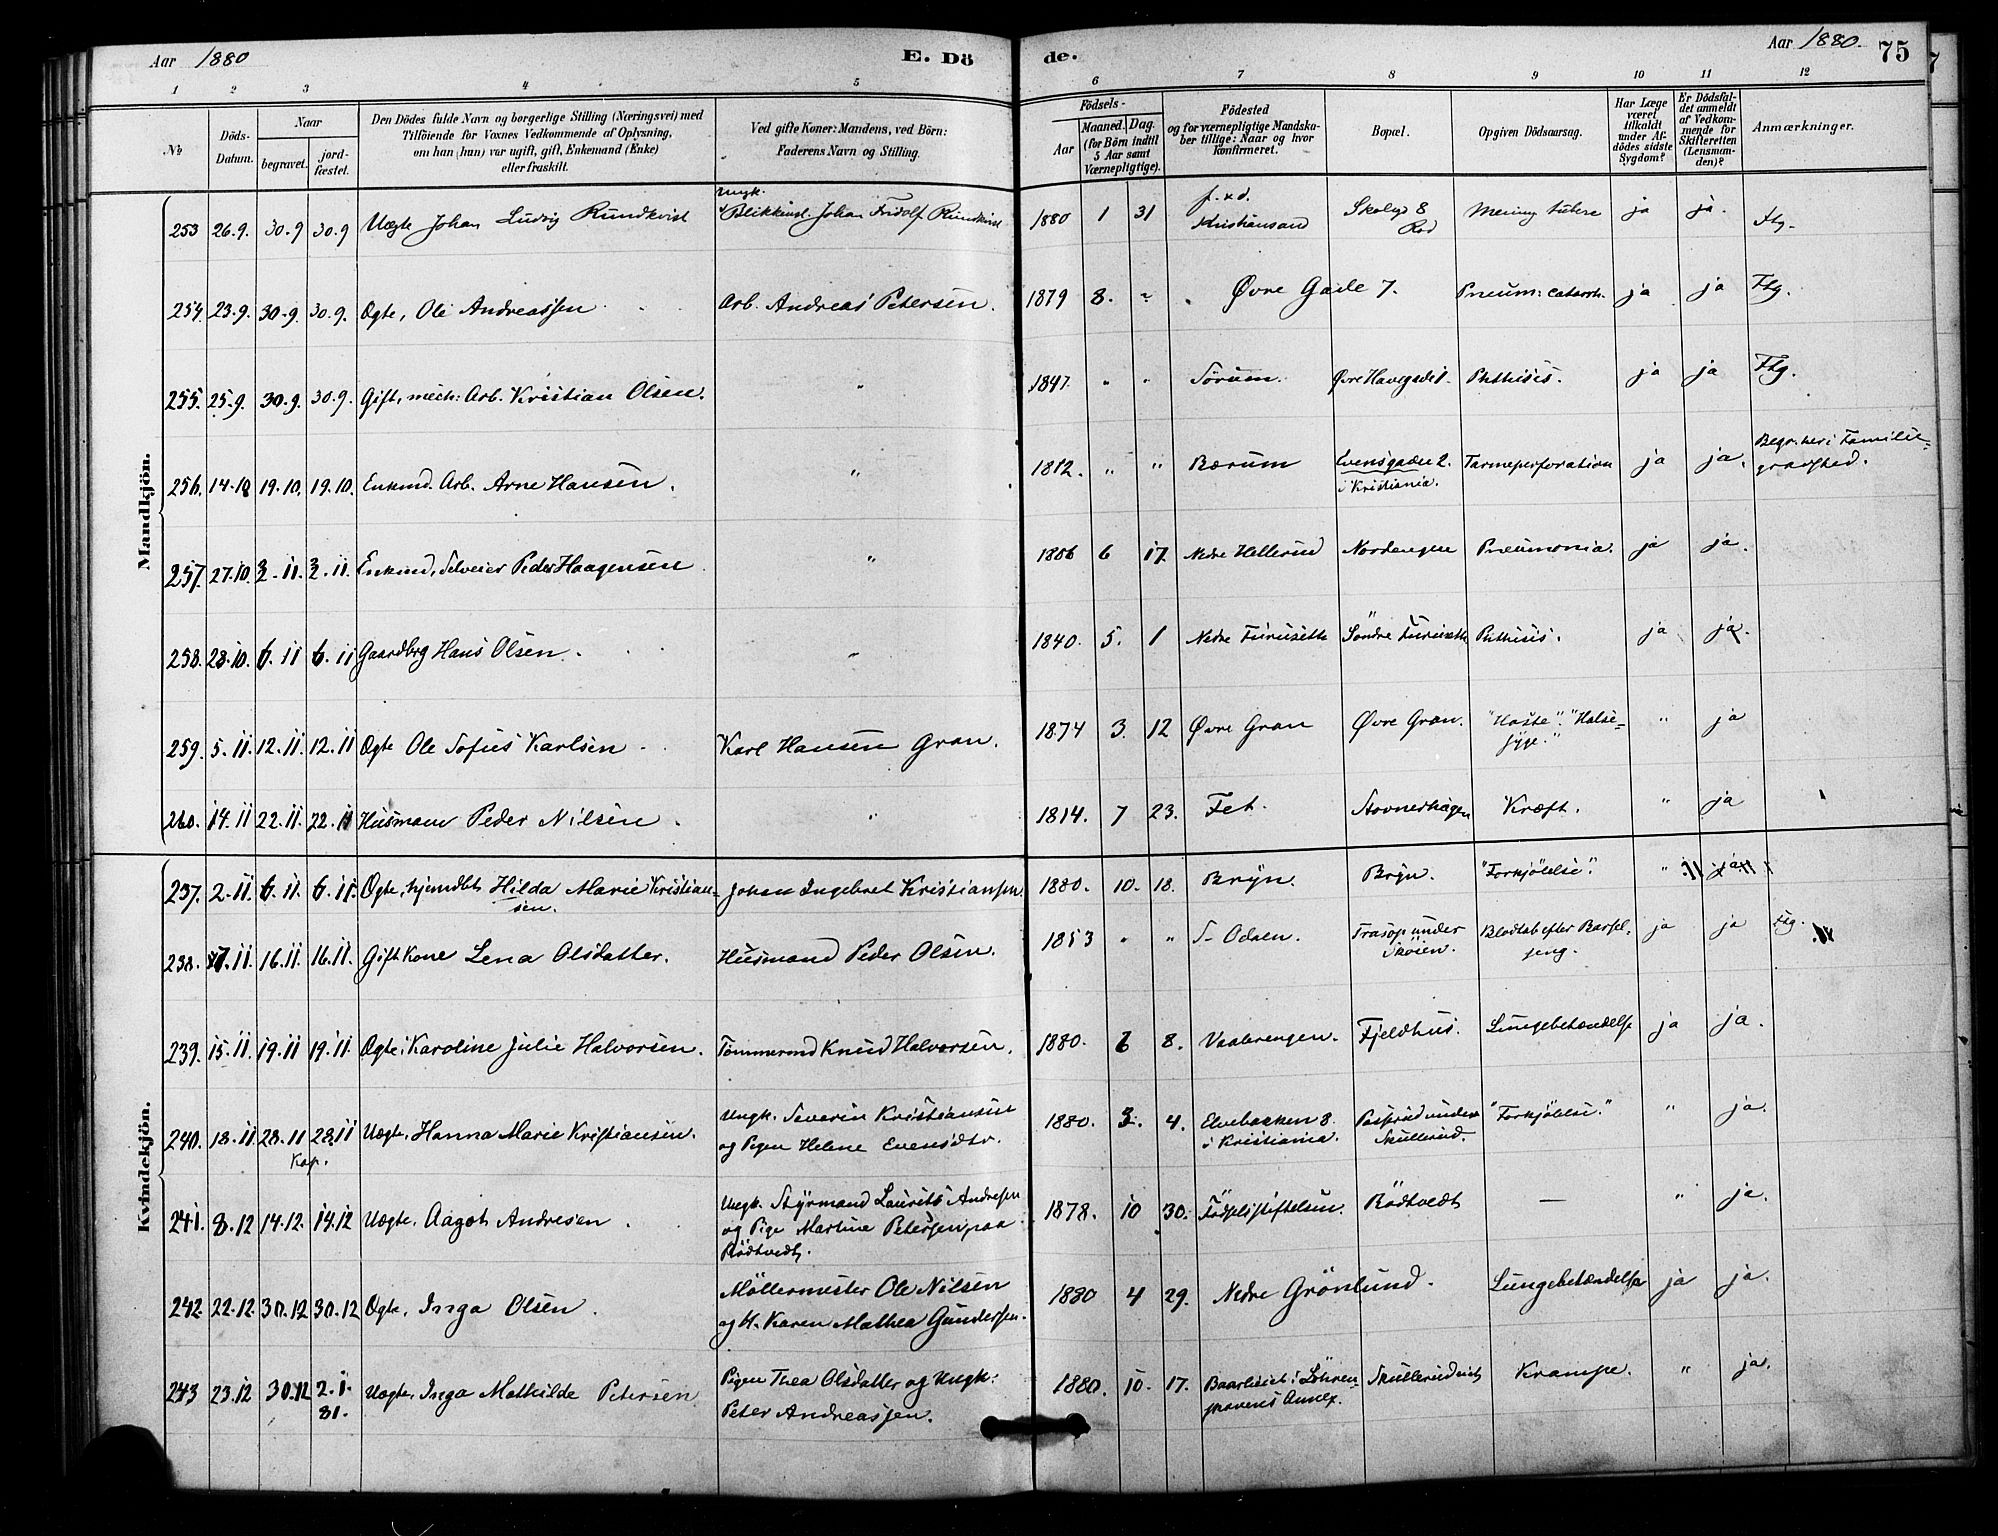 Aar 1880 E. Dö
de. Aar 1880. 75
1 2 3 4 5 6 7 8 9 10 11 12
No
Döds-
Datum.
Naar
begravet.
jord-
fæstet.
Den Dödes fulde Navn og borgerlige Stilling (Næringsvei) med
Tilföiende for Voxnes Vedkommende af Oplysning,
om han (hun) var ugift, gift, Enkemand (Enke)
eller fraskilt.
Ved gifte Koner: Mandens, ved Börn:
Faderens Navn og Stilling.
Födsels-
Aar
Maaned. Dag.
(for Börn indtil
5 Aar samt
Værnepligtige).
Födested
og for værnepligtige Mandska-
ber tillige: Naar og hvor
Konfirmeret.
Bopæl.
Opgiven Dödsaarsag.
Har Læge
været
tilkaldt
under Af-
dödes sidste
Sygdom?
Er Dödsfal-
det anmeldt
af Vedkom-
mende for
Skifteretten
(Lensman-
den)?
Anmærkninger.
Mandkjön.
253 26.9. 30.9 30.9 Uægte Johan Ludvig Rundkvist Ungk. Blikkensl. Johan Fridolf Rundkvist 1880 1 31 f. x d. Kristiansand ja ja. Ftg.
254. 23.9. 30.9. 30.9. Ægte, Ole Andreassen Arb. Andreas Petersen. 1879 8. " Øvre Gade 7. Pneum: catarrh. ja ja Ftg.
255. 25.9. 30.9. 30.9. Gift, mech: Arb. Kristian Olsen. " 1847. " " Sörum. Øvre Havegade 1. Phthisis. ja ja Ftg.
256. 14.10 19.10. 19.10. Enkmd. Arb. Arne Hansen. " 1812. " " Bærum Evensgaden 2. i Kristiania. Tarmeperforation ja ja. Begr. her i Familie-
gravsted.
257. 27.10. 2.11. 2.11. Enkmd, Selveier Peder Haagensen " 1806 6 17. Nedre Hellerud Nordengen Pneumonia. ja ja.
258. 28.10. 6.11 6.11 Gaardbrg Hans Olsen. " 1840. 5. 1 Nedre Furusette Söndre Furusette Phthisis. ja ja.
259. 5.11. 12.11. 12.11 Ægte Ole Sofus Karlsen Karl Hansen Gran. 1874 3. 12 Øvre Gran Øvre Gran. "Hoste". "Halse-
syge." " ja
260. 14.11 22.11. 22.11 Husmann Peder Nilsen. " 1814. 7 23. Fet. Stovnerhagen Kræft. " ja
Kvindekjön.
237. 2.11. 6.11. 6.11. Ægte, hjemdbt Hilda Marie Kristian-
sen. Johan Ingebret Kristiansen 1880. 10. 18. Bryn. Bryn. "Forkjölelse". " ja
238. 7.11 16.11 16.11. Gift Kone Lena Olsdatter. Husmand Peder Olsen. 1853 " " S. Odalen. Trasop under Sköien. Blodtab efter Barsel-
seng. ja ja Ftg.
239. 15.11. 19.11 19.11. Ægte: Karoline Julie Halvorsen. Tömmermd Knud Halvorsen. 1880. 6 8. Vaalerengen. Fjeldhus. Lungebetændelse ja ja.
240. 18.11 28.11 28.11 Kap. Uægte, Hanna Marie Kristiansen. Ungk. Severin Kristiansen
og Pigen Helene Evensdtr. 1880. 3. 4. Elvebakken 8.
i Kristiania. under
Skullerud. "Forkjölelse." " ja.
241. 8.12 14.12. 14.12 Uægte, Aagot Andresen Ungk. Styrmand Laurits Andresen
og Pige Martine Petersen paa
Rödtvedt. 1878. 10 30. Födselsstiftelsen. Rödtvedt — " ja.
242. 22.12. 30.12 30.12 Ægte, Inga Olsen. Möllermester Ole Nilsen
og H. Karen Mathea Gundersen. 1880 4 29. Nedre Grönlund. Lungebetændelse ja ja.
243 23.12 30.12 2.1.
81. Uægte, Inga Mathilde Petersen Pigen Thea Olsdatter og Ungk.
Peter Andreassen. 1880. 10. 17. i Annex. Krampe. " ja.